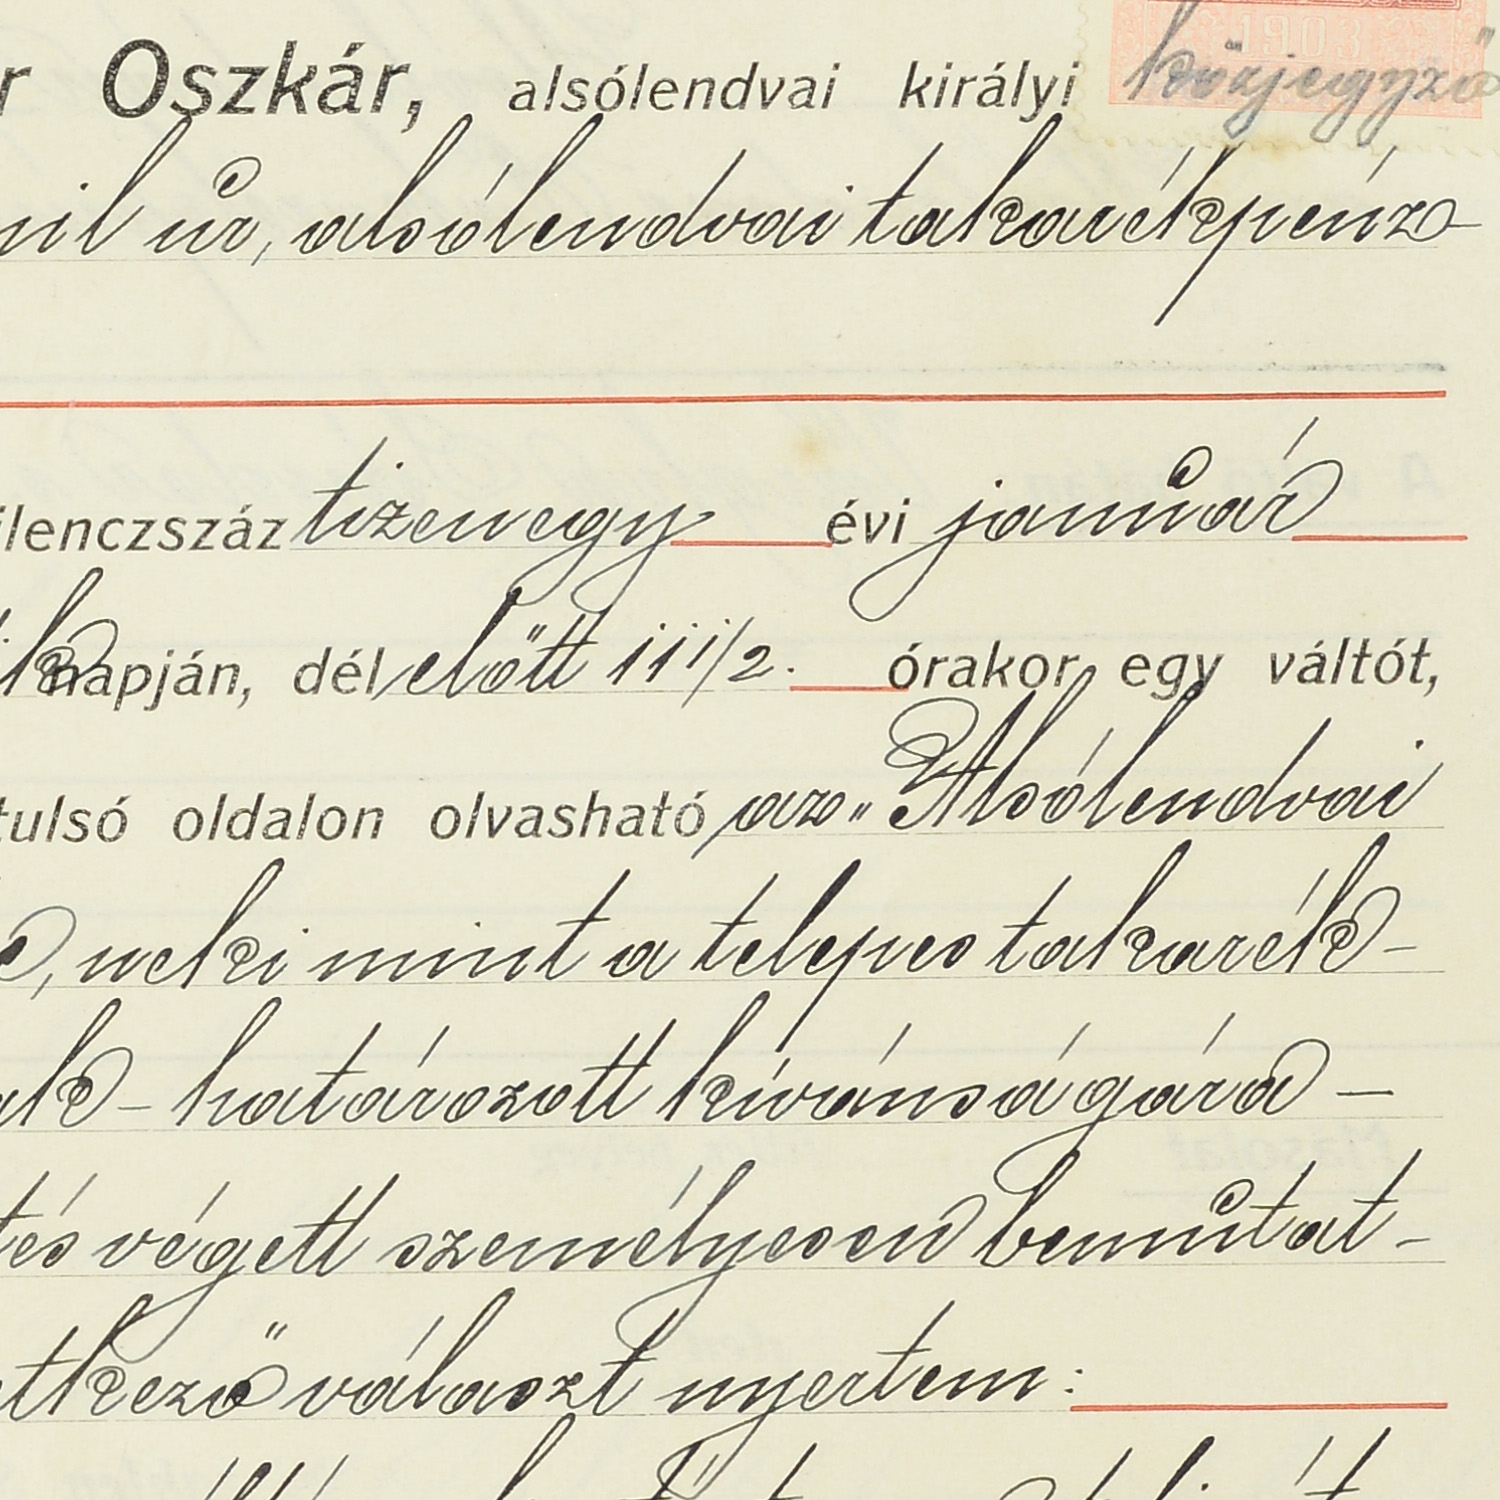 r Oszkár, alsólendvai királyi közjegyző
nil úr, alsólendvai takarékpénz-
ilenczszáz tizenegy évi január
napján, dél előtt 11 1/2. órakor egy váltót,
tulsó oldalon olvasható az „Alsólendvai
neki mint a telepes takarék-
határozott kívánságára –
tés végett személyesen bemutat-
etkező választ nyertem: